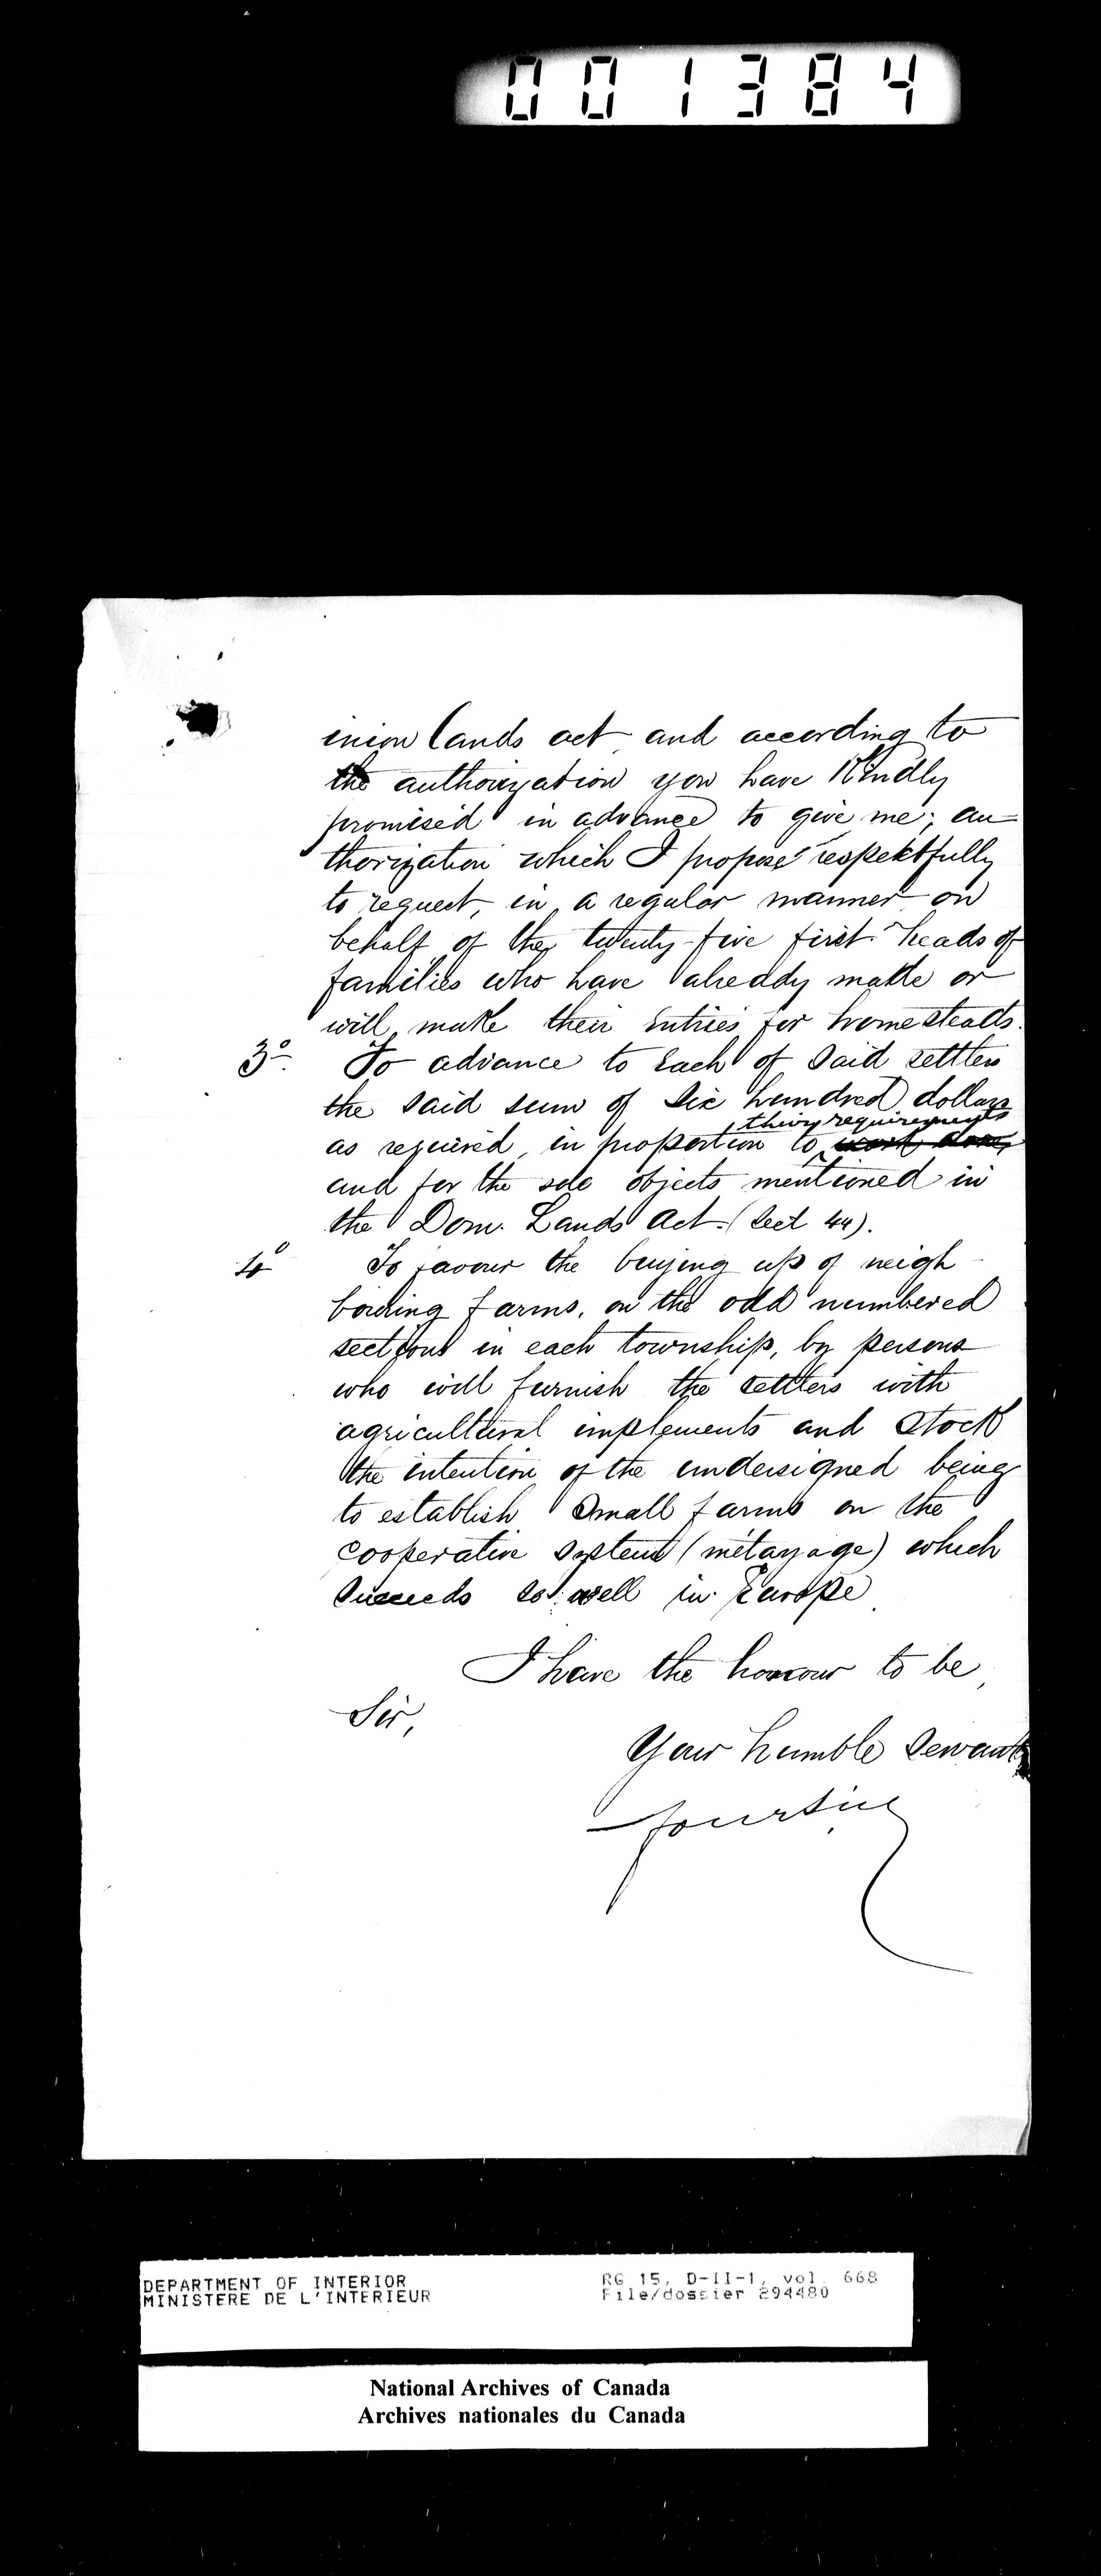 001384
inion lands act and according to
the authorization you have Kindly
promised in advance to give me; au
thorization which I propose respektfully
to request, in a regular manner on
behalf of the twenty-five first heads of
families who have alreddy made or
will make their Entries for homesteads.
3° To advance to Each of Said settlers
the said sum of Six hundred dollars
their requirements
as required, in proportion to work done,
and for the sole objects mentioned in
the Dom. Lands Act. (Sect 44).
4° To favour the buying up of neigh
boring farms, on the odd numbered
sections in each township, by persons
who will furnish the settlers with
agricultural implements and Stock
the intention of the undersigned being
to establish Small farms on the
cooperative System (métayage) which
Succeeds so well in Europe
I have the honour to be,
Sir,
Your humble Servant
DEPARTMENT OF INTERIOR
MINISTERE DE L'INTERIEUR
RG 15, D-II-1, vol. 668
File/dossier 294480
National Archives of Canada
Archives nationales du Canada